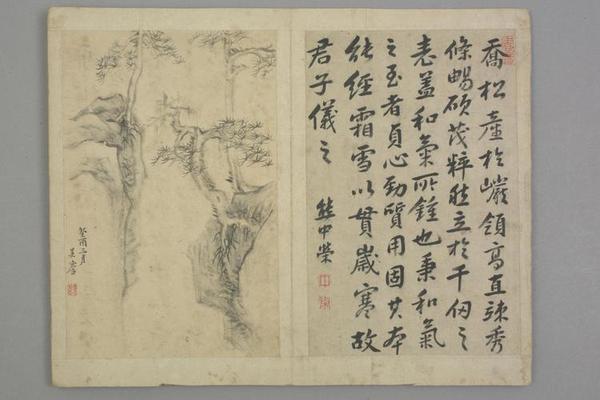 喬松產於巖領高直竦秀
條暢碩茂粹然立於千仞之
表蓋和氣所鍾也秉和氣
之至者貞心勁質用固其本
能經霜雪以貫歲寒故
君子儀之
熊中榮
癸酉二月